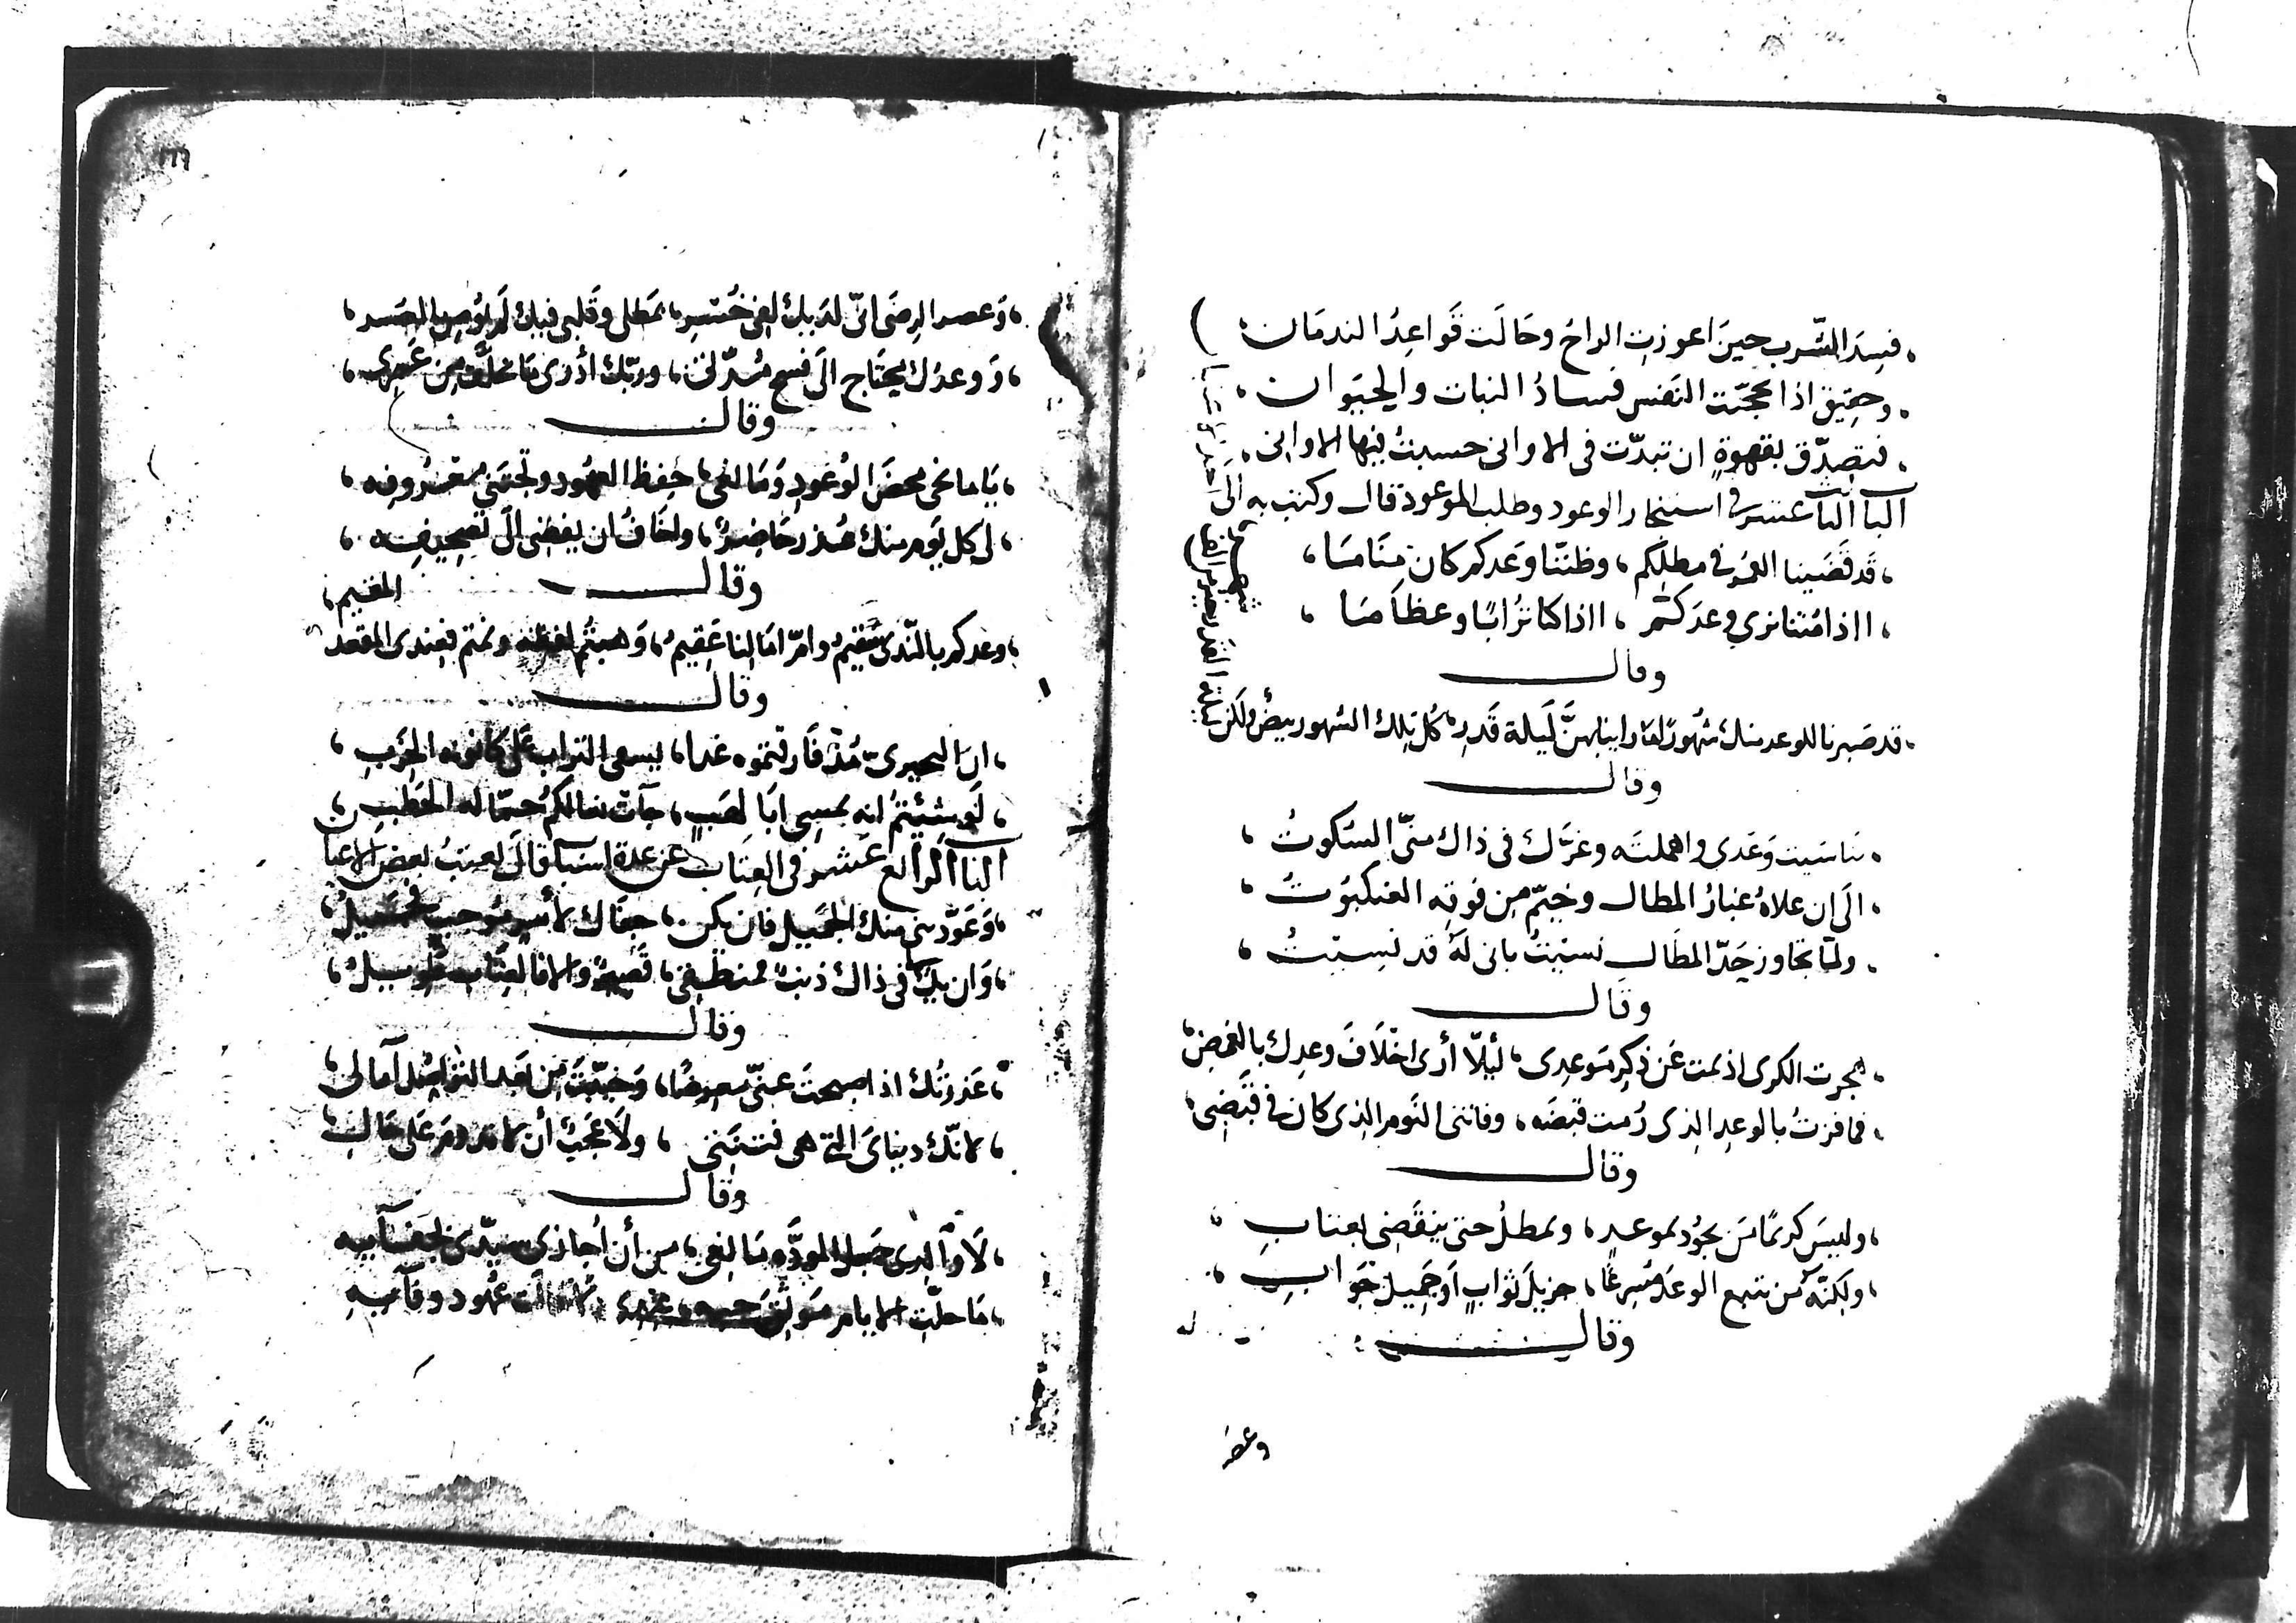 فسد الشرب حين اعوزت الراح وحالت قواعد الندمان
وحقيق اذا محجت النفس فساد النبات والحيوان
فتصدق بقهوة ان تبدت في الاواني حسبت فيها الاواني
الباب الثالث عشر في استنجاز الوعود وطلب الموعود قال وكتب به الى احد
قد قضينا العمر في مطلكم ، وظننا وعدكم كان مناما
ااذا متنا نرى وعدكم ، ااذا كنا ترابا وعظاما
وقال
قد صبرنا للوعد منك شهورا ما راينا بهن ليلة قدر ، كل تلك الشهور بيض ولكن
ليلة القدر خير من الف شهر
وقال
تناسيت وعدي واهملته وغرك في ذاك مني السكوت
الى ان علاه غبار المطال وخيم من فوقه العنكبوت
ولما تجاوز حد المطال نسيت باني له قد نسيت
وقال
هجرت الكرى اذ نمت عن ذكر موعدي ، ليلا أرى اخلاف وعدك بالغمض
فما فزت بالوعد الذي رمت قبضه ، وفاتني النوم الذي كان في قبضي
وقال
وليس كريما من يجود بموعد ، ويمطل حتى ينقضي بعتاب
ولكنه من يتبع الوعد مسرعا ، جزيل ثواب او جميل جواب
وقال
وعصر
وعصر الرضى اني لديك لفي خسر ، بمطل وقلبي فيك لم يوص بالصبر
ووعدك يحتاج الى فسح مدتي ، وربك أدرى ما تخلف من عمري
وقال
يا مانحي محض الوعود ومانعي ، حفظ العهود وتجتني معروفه
لي كل يوم منك عذر حاضر ، واخاف ان يفضي الى تصحيفه
وقال
وعدكم بالندى سقيم وامر امالنا عقيم ، وهبتم لفظه ونمتم فعندي المقعد
المقيم
وقال
ان البحيري مذ فارقتموه غدا ، يسعى التراب على كانونه الخرب
لو شئتم انه يمسي ابا لهب ، جآت بغالكم حمالة الحطب
الباب الرابع عشر في العتاب عن عدة اسباب قال يعتب بعض الاعيان
وعودتني منك الجميل فان يكن ، جفاك لامر موجب فجميل
وان يك في ذاك ذنب فمنطقي ، قصير والا فالعتاب طويل
وقال
عذرتك اذ اصبحت عني معرضا ، وخيبت من بعد التواصل آمالي
لانك دنياي التي هي فتنتي ، ولا عجب أن لا تدوم على حال
وقال
لا والذي جعل المودة مانعي ، من أن أجازي سيدي بجفائه
ما حلت الايام موثق حبه عهود وفائه